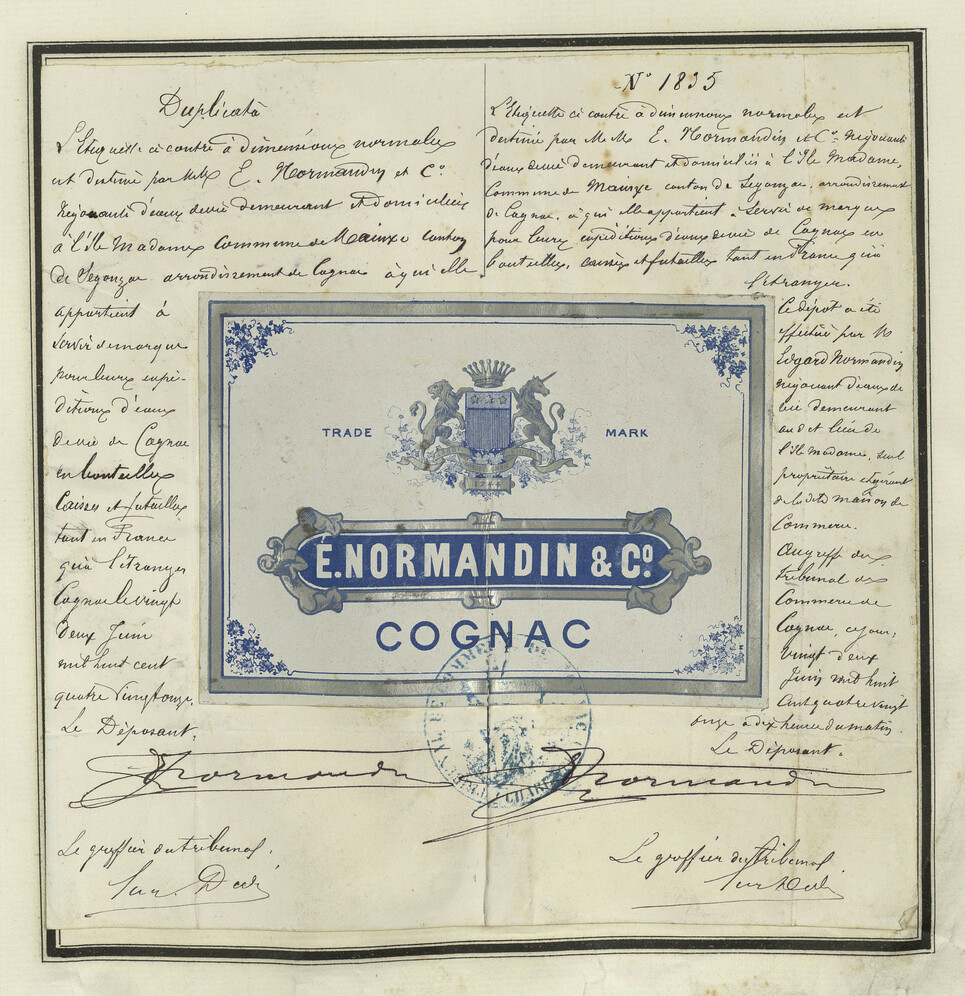 Duplicata
L'Etiquette ci contre à dimensions normales
est destinée par M.M. E. Normandin et Co
négociants d'eaux de vie demeurant et domiciliés
à l'île Madame Commune de Mainxe canton
de Segonzac arrondissement de Cognac à qui elle
appartient à
servir de marque
pour leurs expé-
ditions d'eaux
de vie de Cognac
en bouteilles
Caisses et futailles
tant en France
qu'à l'étranger
Cognac le vingt
deux Juin
mil huit cent
quatre vingt onze.
Le Déposant.
Normandin
Le greffier du tribunal.
No 1835
L'Etiquette ci contre à dimensions normales est
destinée par M.M. E. Normandin et Co négociants
d'eaux de vie demeurant et domiciliés à l'île Madame,
Commune de Mainxe canton de Segonzac, arrondissement
de Cognac, à qui elle appartient à servir de marque
pour leurs expéditions d'eaux de vie de Cognac en
bouteilles, caisses et futailles tant en France qu'à
l'étranger.
Le dépôt a été
effectué par M
Edgard Normandin
négociant d'eaux de
vie demeurant
au dit lieu de
l'île Madame, seul
propriétaire et gérant
de la dite maison de
Commerce.
Au greffe du
tribunal de
Commerce de
Cognac, ce jour,
vingt deux
Juin mil huit
cent quatre vingt
onze à dix heures du matin.
Le Déposant.
Normandin
Le greffier du tribunal
TRADE MARK
1844
É. NORMANDIN & Co.
COGNAC